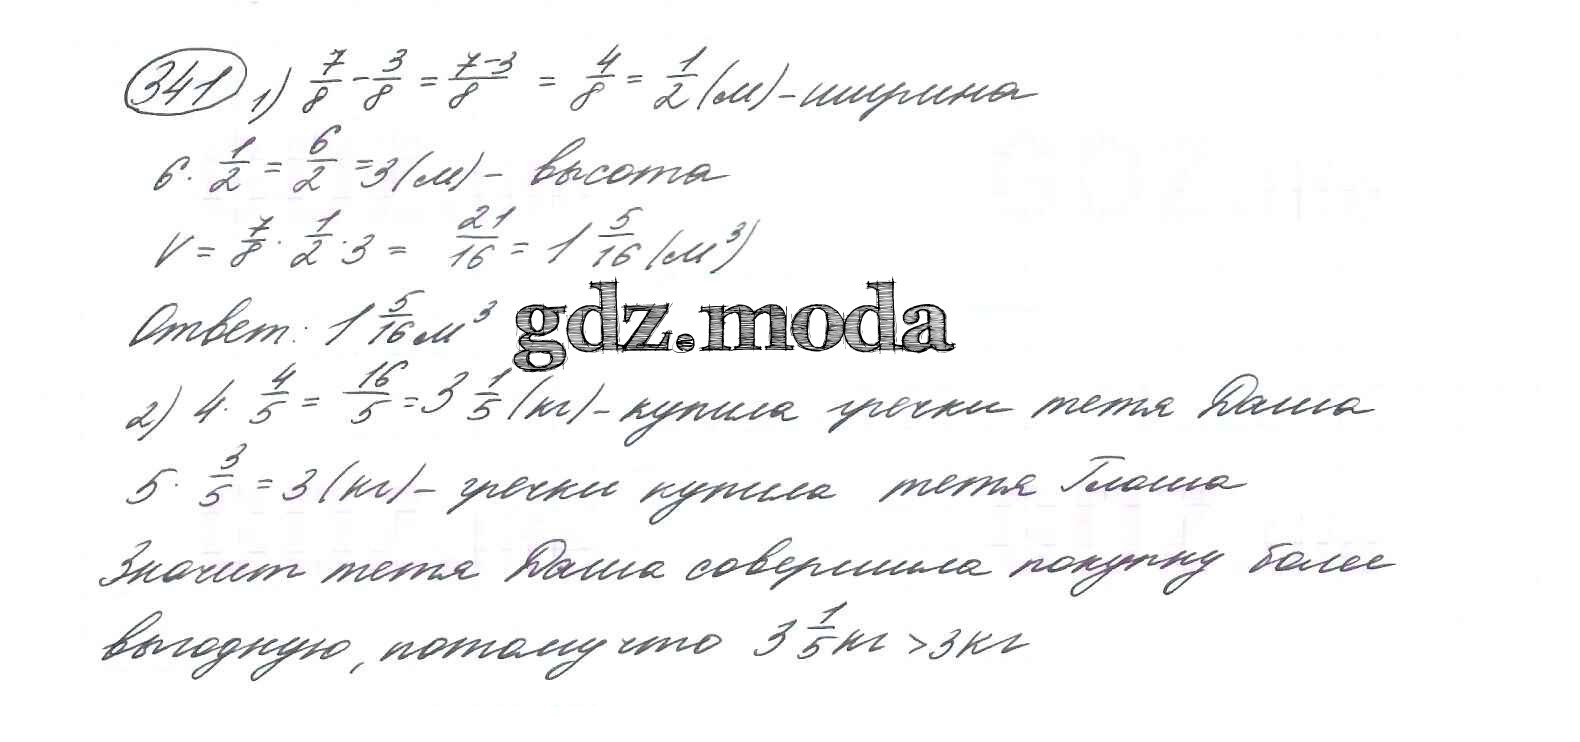 341 1) 7/8 - 3/8 = 7-3/8 = 4/8 = 1/2 (м) - ширина
6 · 1/2 = 6/2 = 3 (м) - высота
V = 7/8 · 1/2 · 3 = 21/16 = 1 5/16 (м³)
Ответ: 1 5/16 м³
gdz.moda
2) 4 · 4/5 = 16/5 = 3 1/5 (кг) - купила гречки тетя Даша
5 · 3/5 = 3 (кг) - гречки купила тетя Глаша
Значит тетя Даша совершила покупку более
выгодную, потому что 3 1/5 кг > 3 кг